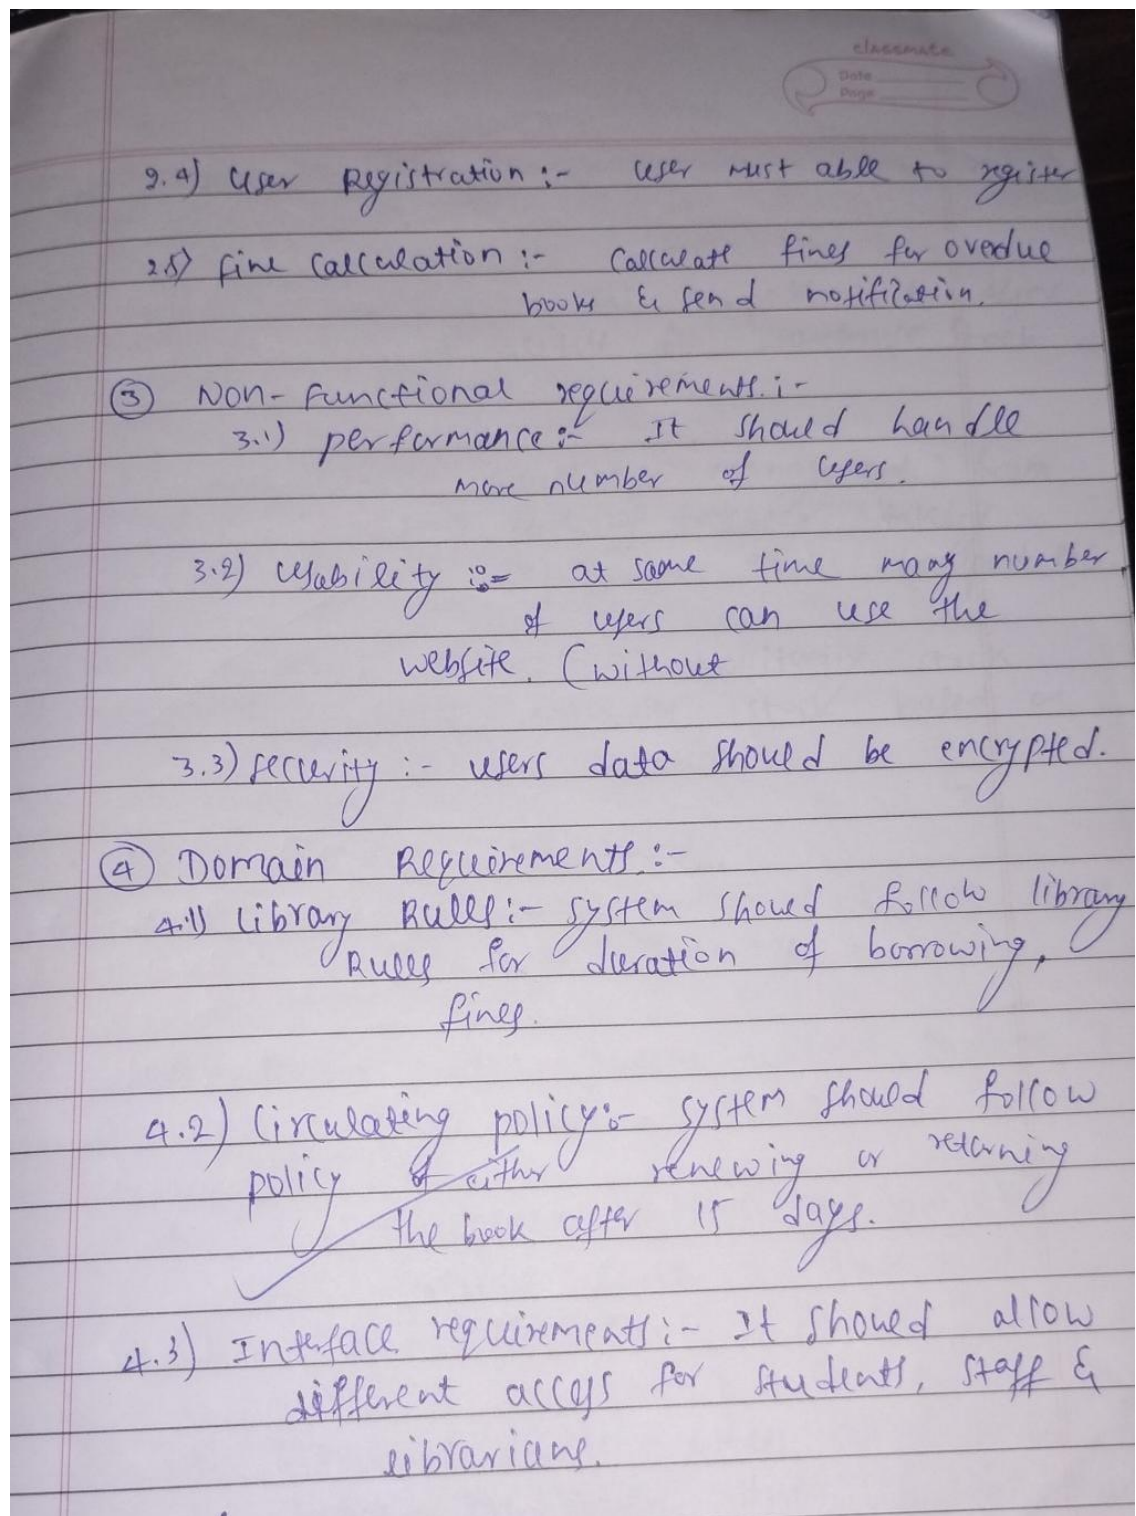 classmate
Date
Page
2.4) User Registration :- User must able to register
2.5) fine calculation :- Calculate fines for overdue
books & send notification.
③ Non-functional requirements :-
3.1) performance :- It should handle
more number of users.
3.2) Usability :- at same time many number
of users can use the
website. (without
3.3) security :- users data should be encrypted.
④ Domain Requirements :-
4.1) library Rules :- system should follow library
Rules for duration of borrowing,
fines.
4.2) Circulating policy :- system should follow
policy of either renewing or returning
the book after 15 days.
4.3) Interface requirements :- It should allow
different access for students, staff &
librarians.